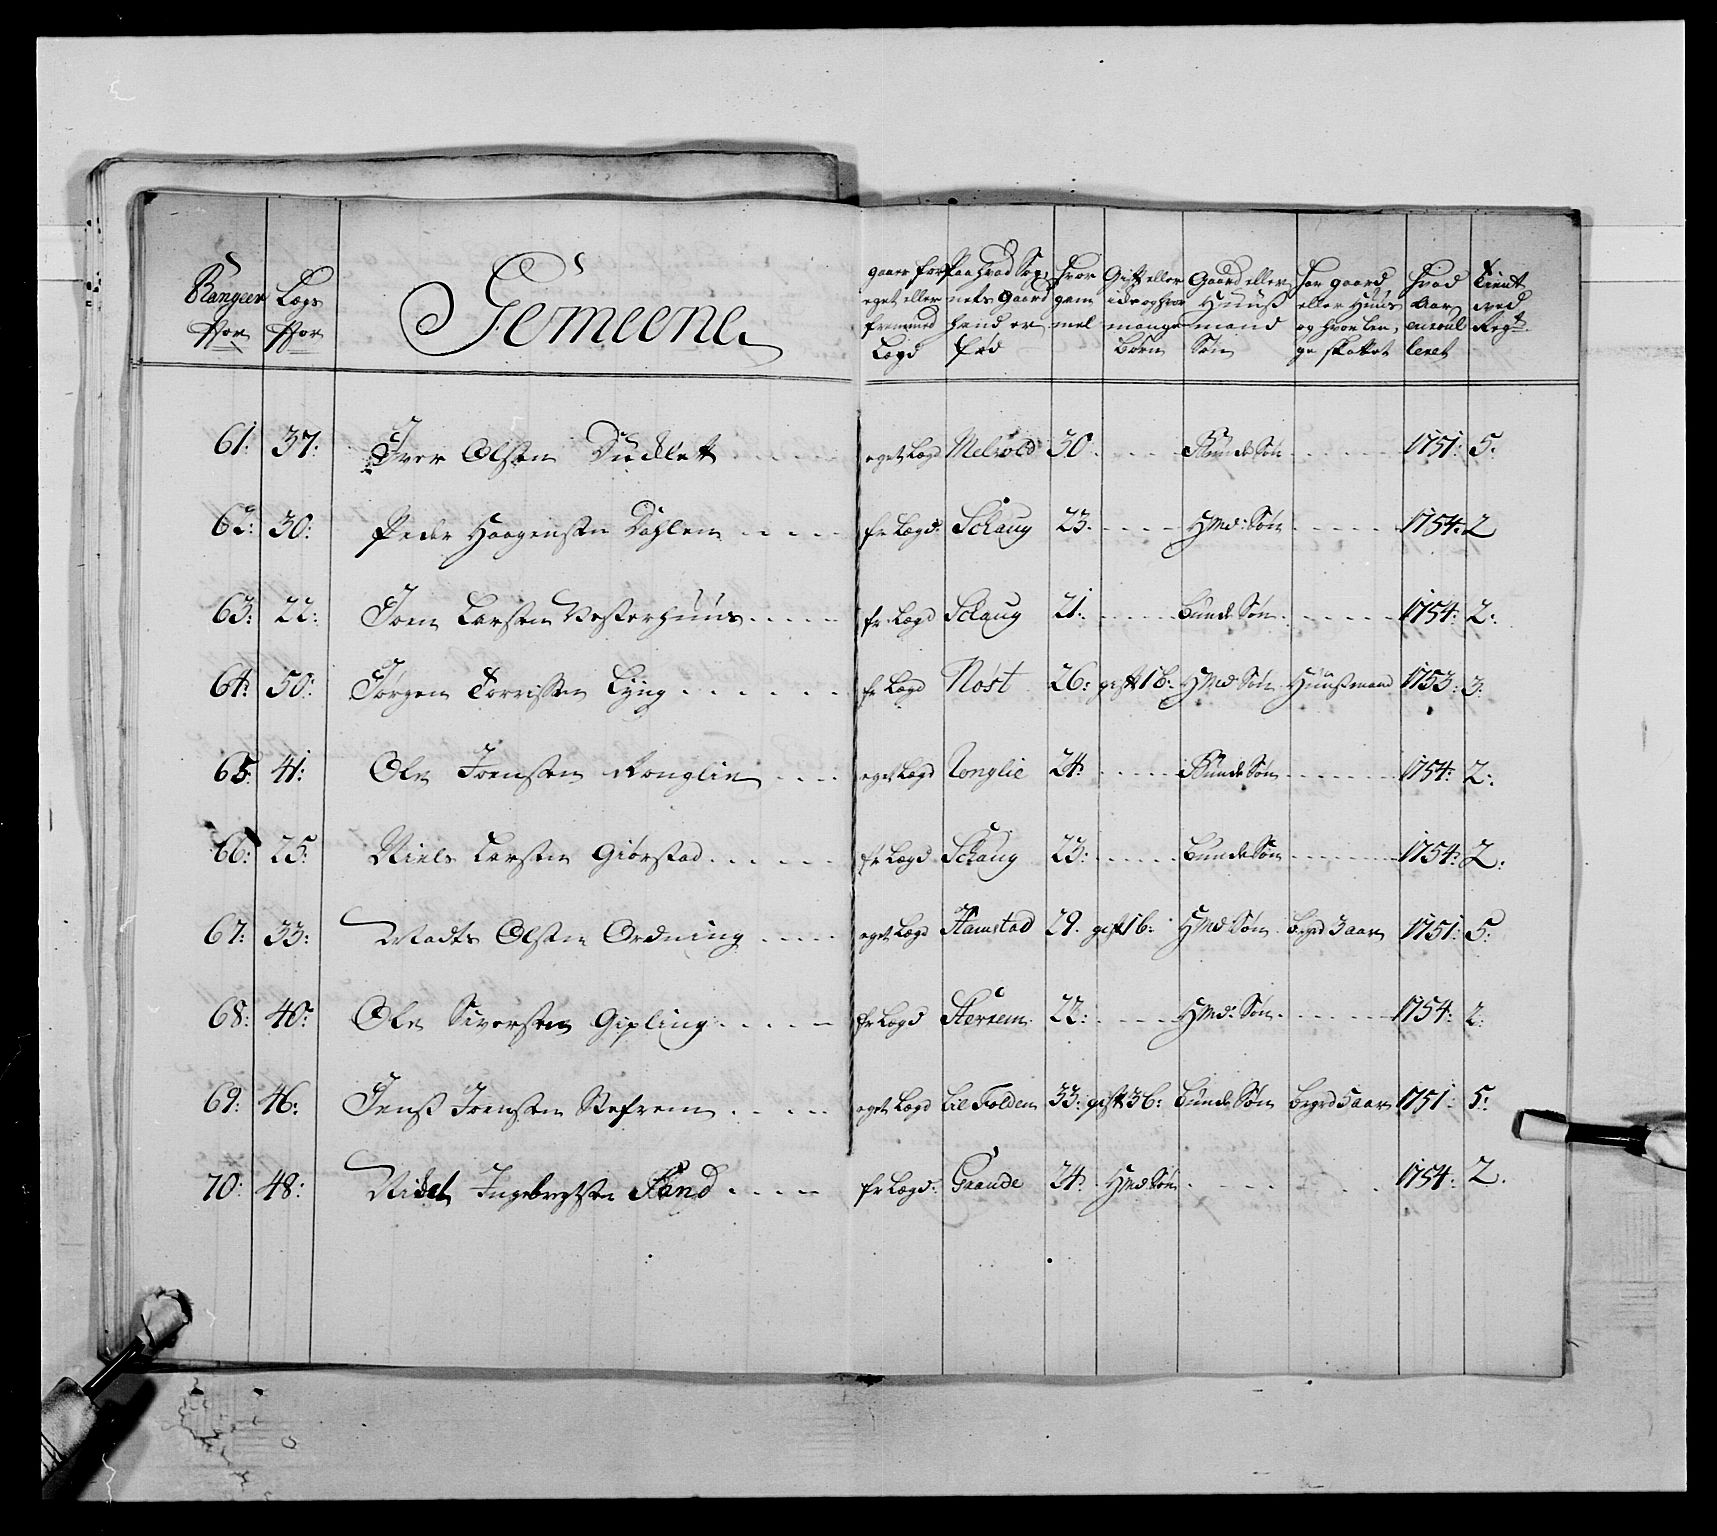 Rangeer Nor
Lægs Nor
Gemeene
gaaer for eget eller fremmed Lægd
Paa hvad Sog: nets gaard hand er fød
hvor gam mel
Gift eller ide og hvor mange Børn
Gaard eller Huuß mand Søn
har gaard eller Huus og hvor len, ge
hvad Aar enroul leret
tient ved Regt.
61: 37: Iver Olsen eget Lægd Melvold 30. Bunde Søn 1751: 5.
62: 30: Peder Haagensen Dahlen fr Lægd: Schaug 23. HMd: Søn 1754: 2
63: 22: Joen Larsen Vesterhuus fr Lægd Schaug 21. Bunde Søn 1754: 2:
64: 50: Jørgen Torrissen Lÿng fr Lægd Nøst 26: gift 1 B: HMd Søn Huusmand 1753: 3:
65: 41: Ole Joensen Ronglie eget Lægd Ronglie 24: Bunde Søn 1754: 2:
66: 25: Niels Larsen Giørstad fr Lægd Schaug 23: Bunde Søn 1754: 2:
67: 33: Madts Olsen Ordning eget Lægd Hamstad 29. gift 1 b: HMd Søn bøgd 3 aar 1751: 5:
68: 40: Ole Siversen Gipling fr Lægd Hersem 22: HMd: Søn 1754: 2:
69: 46: Jenß Joensen eget Lægd Lil Folden 33: gift 3 b: Bunde Søn bøgd 5 aar 1751: 5:
70: 48: Ingebregtsen Sand fr Lægd: Grande 24: HMd Søn 1754: 2.